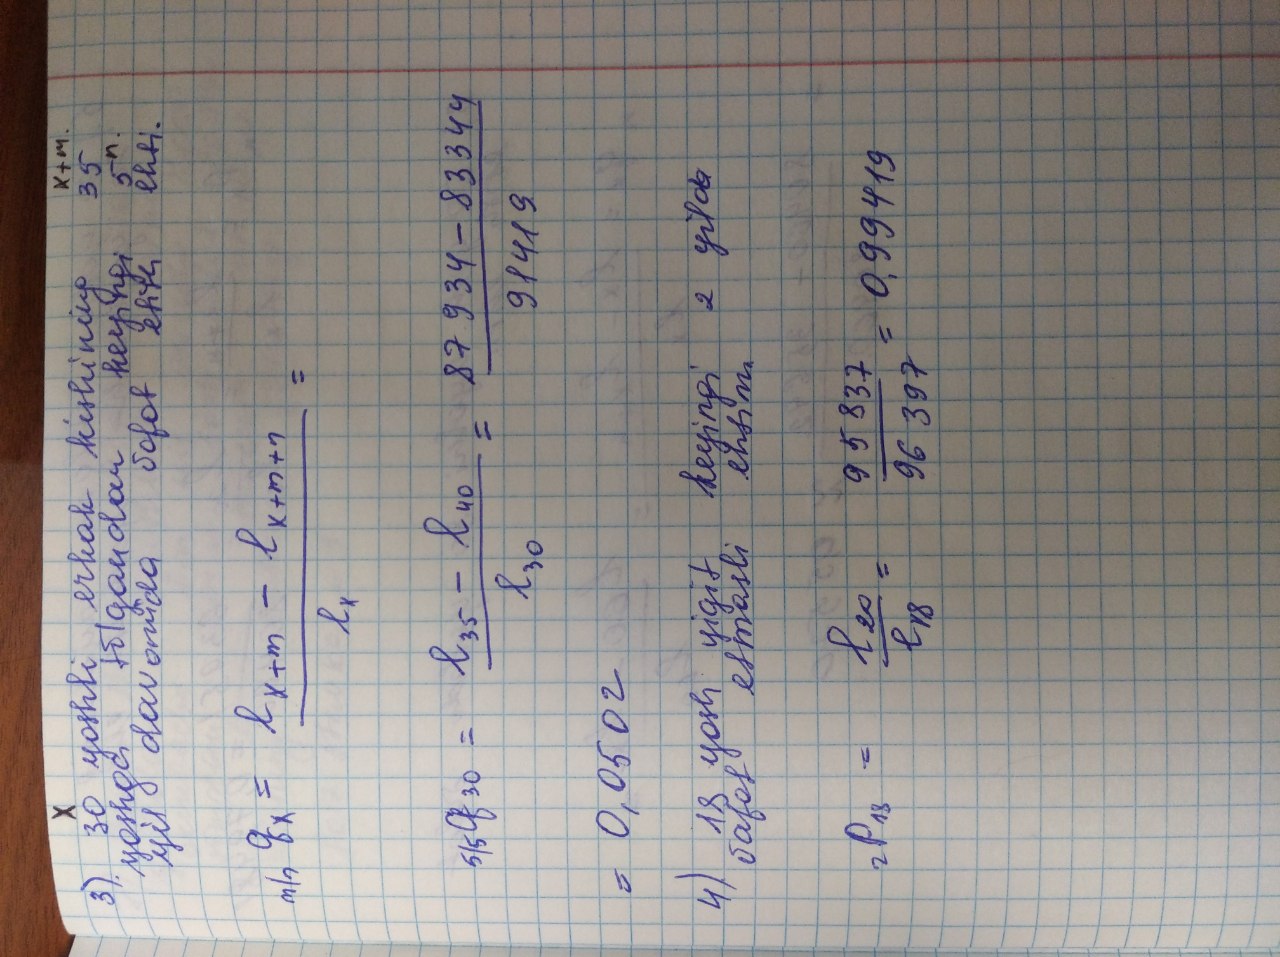 x x+m.
3). 30 yoshli erkak kishining 35
yoshga to'lgandan keyingi 5-n.
yil davomida vafot etish ehti.
m|n qx = lx+m - lx+m+n / lx =
5|5q30 = l35 - l40 / l30 = 87934 - 83344 / 91419
= 0,0502
4) 18 yosh yigit keyingi 2 yilda
vafot etmasli ehtim.
2P18 = l20 / l18 = 95837 / 96397 = 0,99419